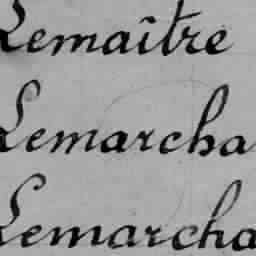 Lemaître
Lemarcha
Lemarcha